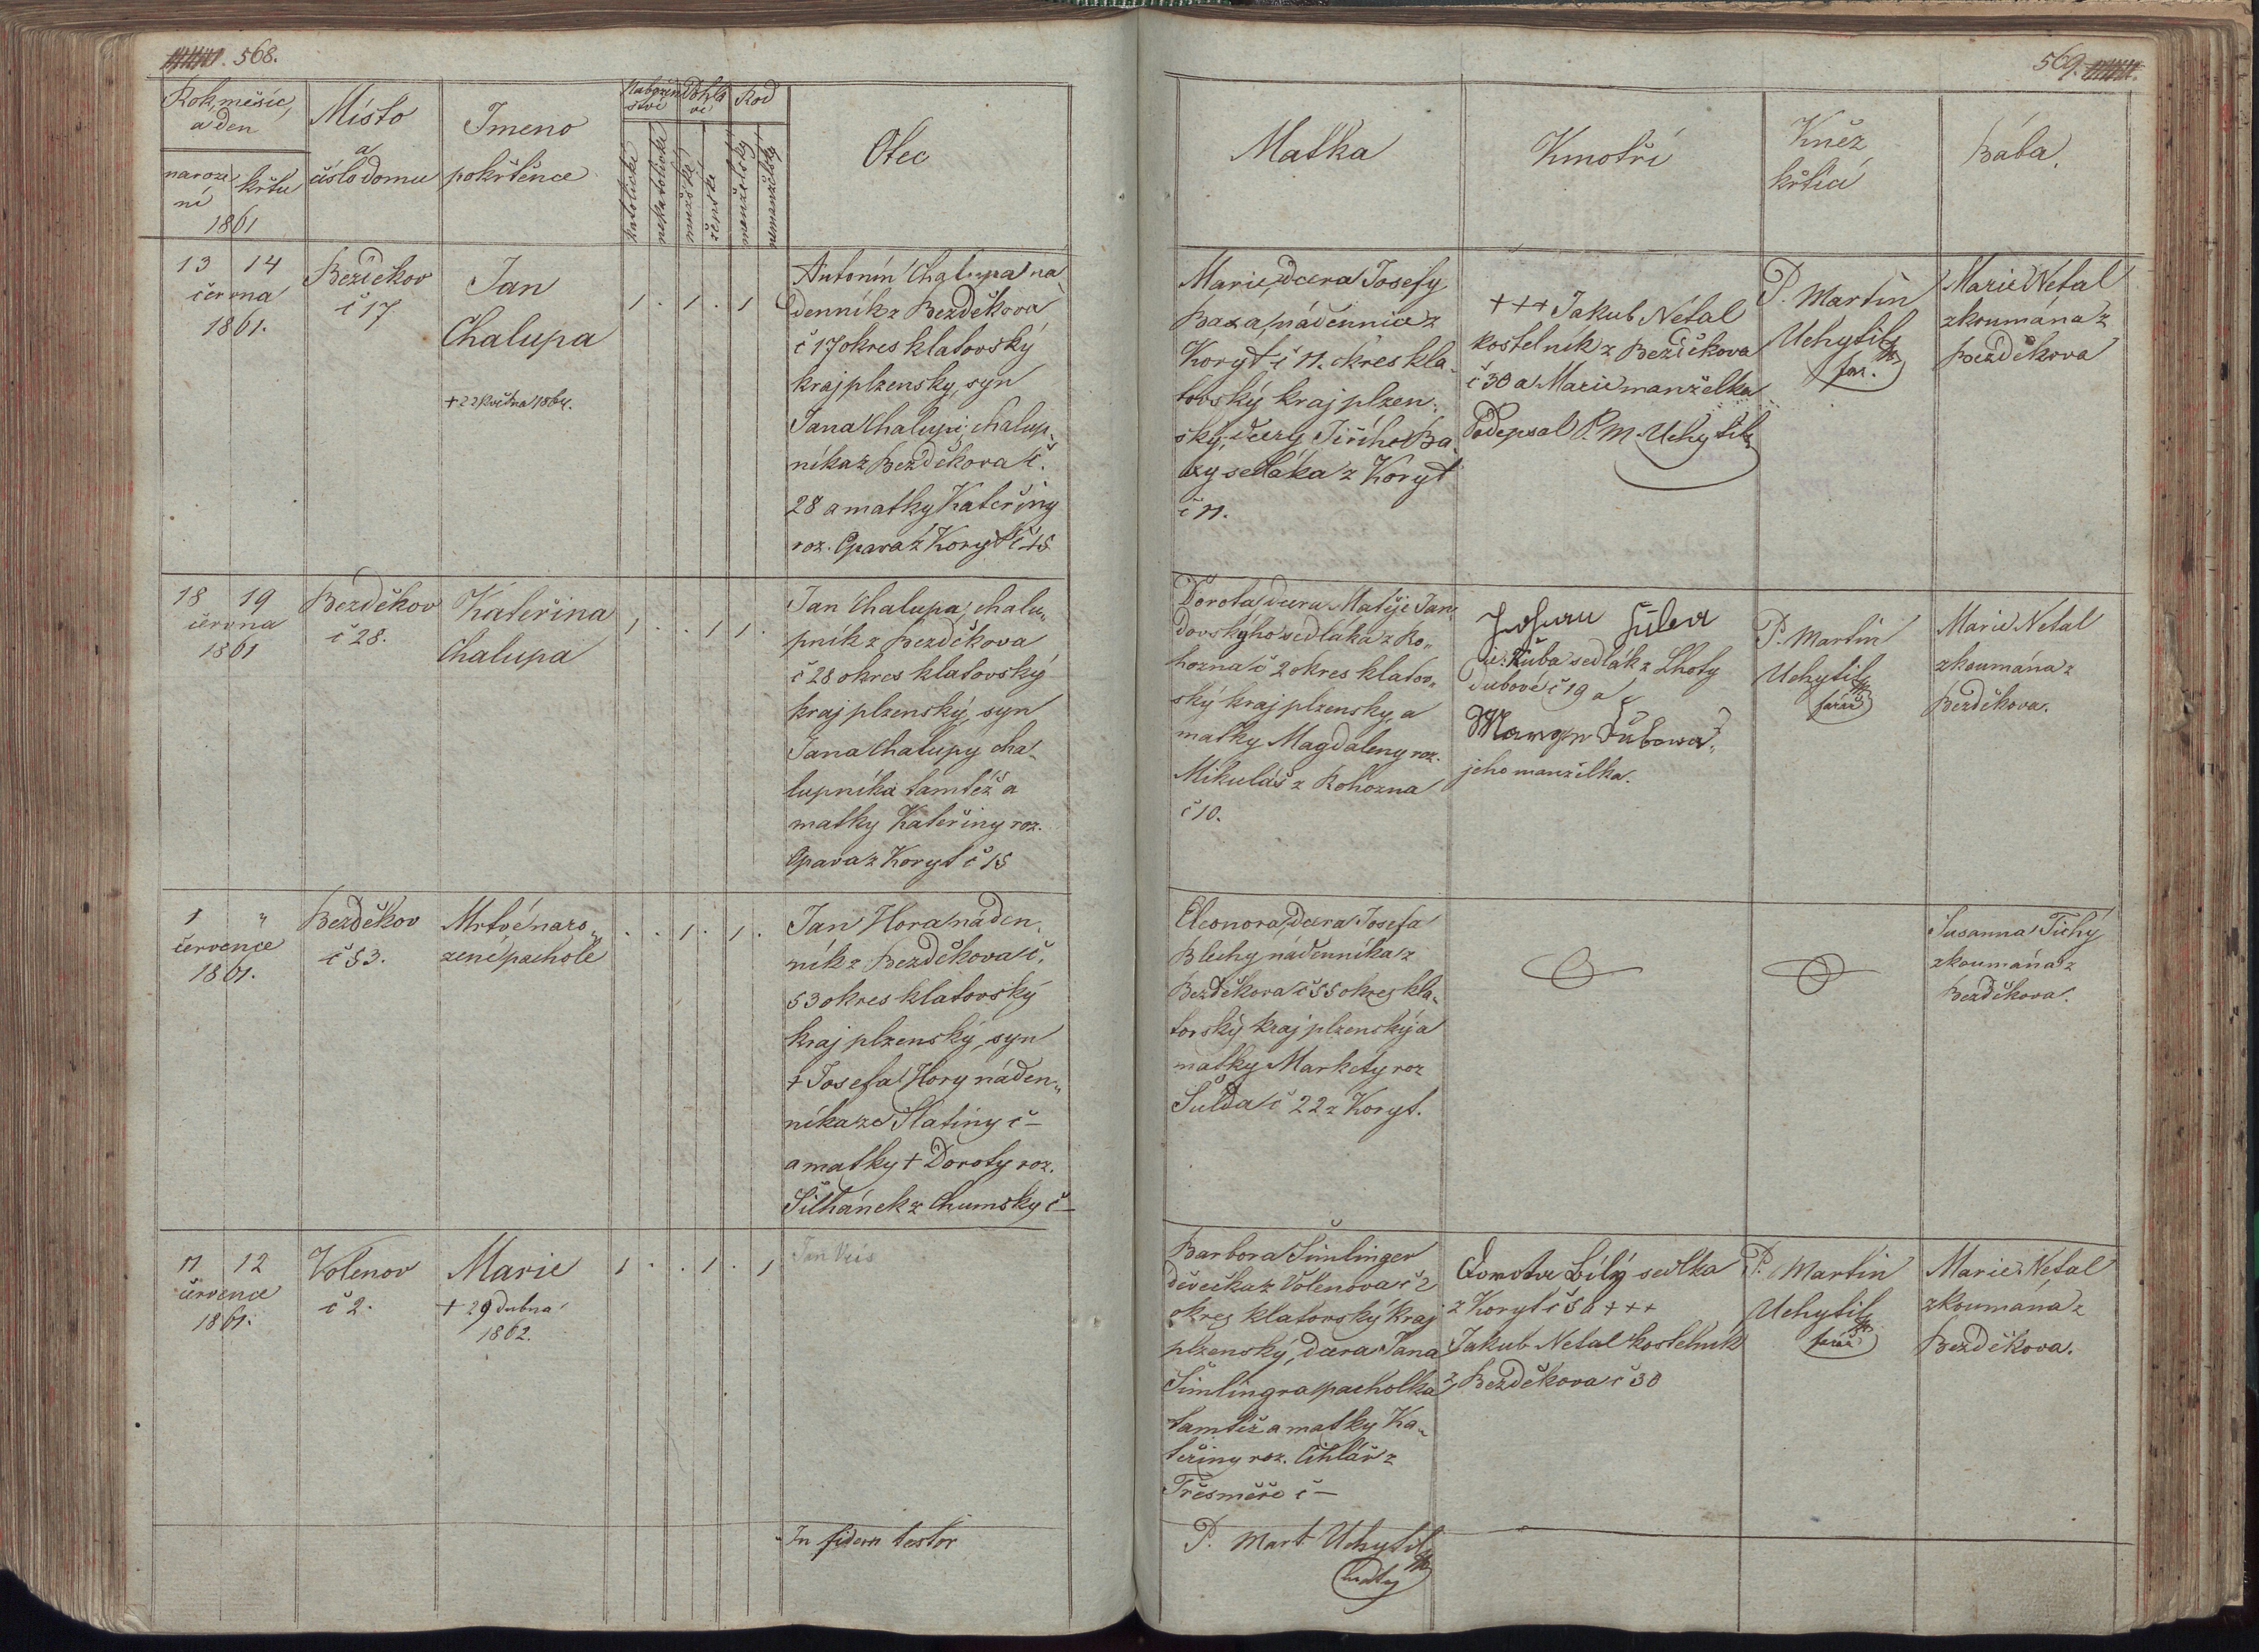 568.
Rok, měsíc,
a den
narození
křtu
1861
Místo
a
číslo domu
Jmeno
pokřtěnce
Nabožen
ství
katolické
nekatolické
Pohla
ví
mužské
ženské
Rod
manželský
nemanželský
Otec
13 14
června
1861.
Bezděkov
č 17
Jan
Chalupa
+ 22 května 1864.
1 . 1 . 1
Antonín Chalupa ná
denník z Bezděkova
č 17 okres klatovský
kraj plzenský, syn
Jana Chalupy, chalup„
níka z Bezděkova č.
28 a matky Kateřiny
roz. Opava z Koryt č 15
18 19
června
1861
Bezděkov
č 28.
Kateřina
Chalupa
1 . . 1 1 .
Jan Chalupa, chalu„
pník z Bezděkova
č 28 okres klatovský
kraj plzenský, syn
Jana Chalupy cha„
lupníka tamtéž a
matky Kateřiny roz.
Opava z Koryt č 15
1 „
července
1861.
Bezděkov
č 53.
Mrtvé naro„
zené pachole
. . 1 . 1 .
Jan Hora náden„
ník z Bezděkova č.
53 okres klatovský
kraj plzenský, syn
+ Josefa Hory náden„
níka ze Slatiny č —
a matky + Doroty roz.
Šilhánek z Chumsky č —
11 12
července
1861.
Volenov
č 2.
Marie
+ 29 dubna
1862.
1 . . 1 . 1
In fidem testor
569.
Matka
Kmotři
Kněz
křtící
Bába.
Marie, dcera Josefy
Baxa, nádennice z
Koryt č 11. okres kla„
tovský kraj plzen„
ský, dcery Jiřího Ba„
xy sedláka z Koryt
č 11.
+++ Jakub Netal
kostelník z Bezděkova
č 30 a Marie manželka
Podepsal P. M. Uchytil
P. Martin
Uchytil
far.
Marie Netal
zkoumána z
Bezděkova
Dorota, dcera Matěje Jan„
dovskýho sedláka z Ro„
hozna č 2 okres klatov„
ský kraj plzenský, a
matky Magdaleny roz.
Mikuláš z Rohozna
č 10.
Johann
Kuba sedlák z Lhoty
dubové č 19 a
jeho manželka.
P. Martin
Uchytil
farář
Marie Netal
zkoumána z
Bezděkova.
Eleonora, dcera Josefa
Blechy nádenníka z
Bezděkova č 55 okres kla„
tovský kraj plzenský a
matky Markety roz
Šulda č 22 z Koryt.
Susanna Tichý
zkoumána z
Bezděkova.
Barbora Šimlinger
děvečka z Volenova č 2
okres klatovský kraj
plzenský, dcera Jana
Šimlingra pacholka z
tamtéž a matky Ka„
teřiny roz. Cihlář z
Třesměře č —
Dorota Bílý sedlka
z Koryt č 56 +++
Jakub Netal kostelník
z Bezděkova č 30
P. Martin
Uchytil
farář
Marie Netal
zkoumána z
Bezděkova.
P. Mart. Uchytil